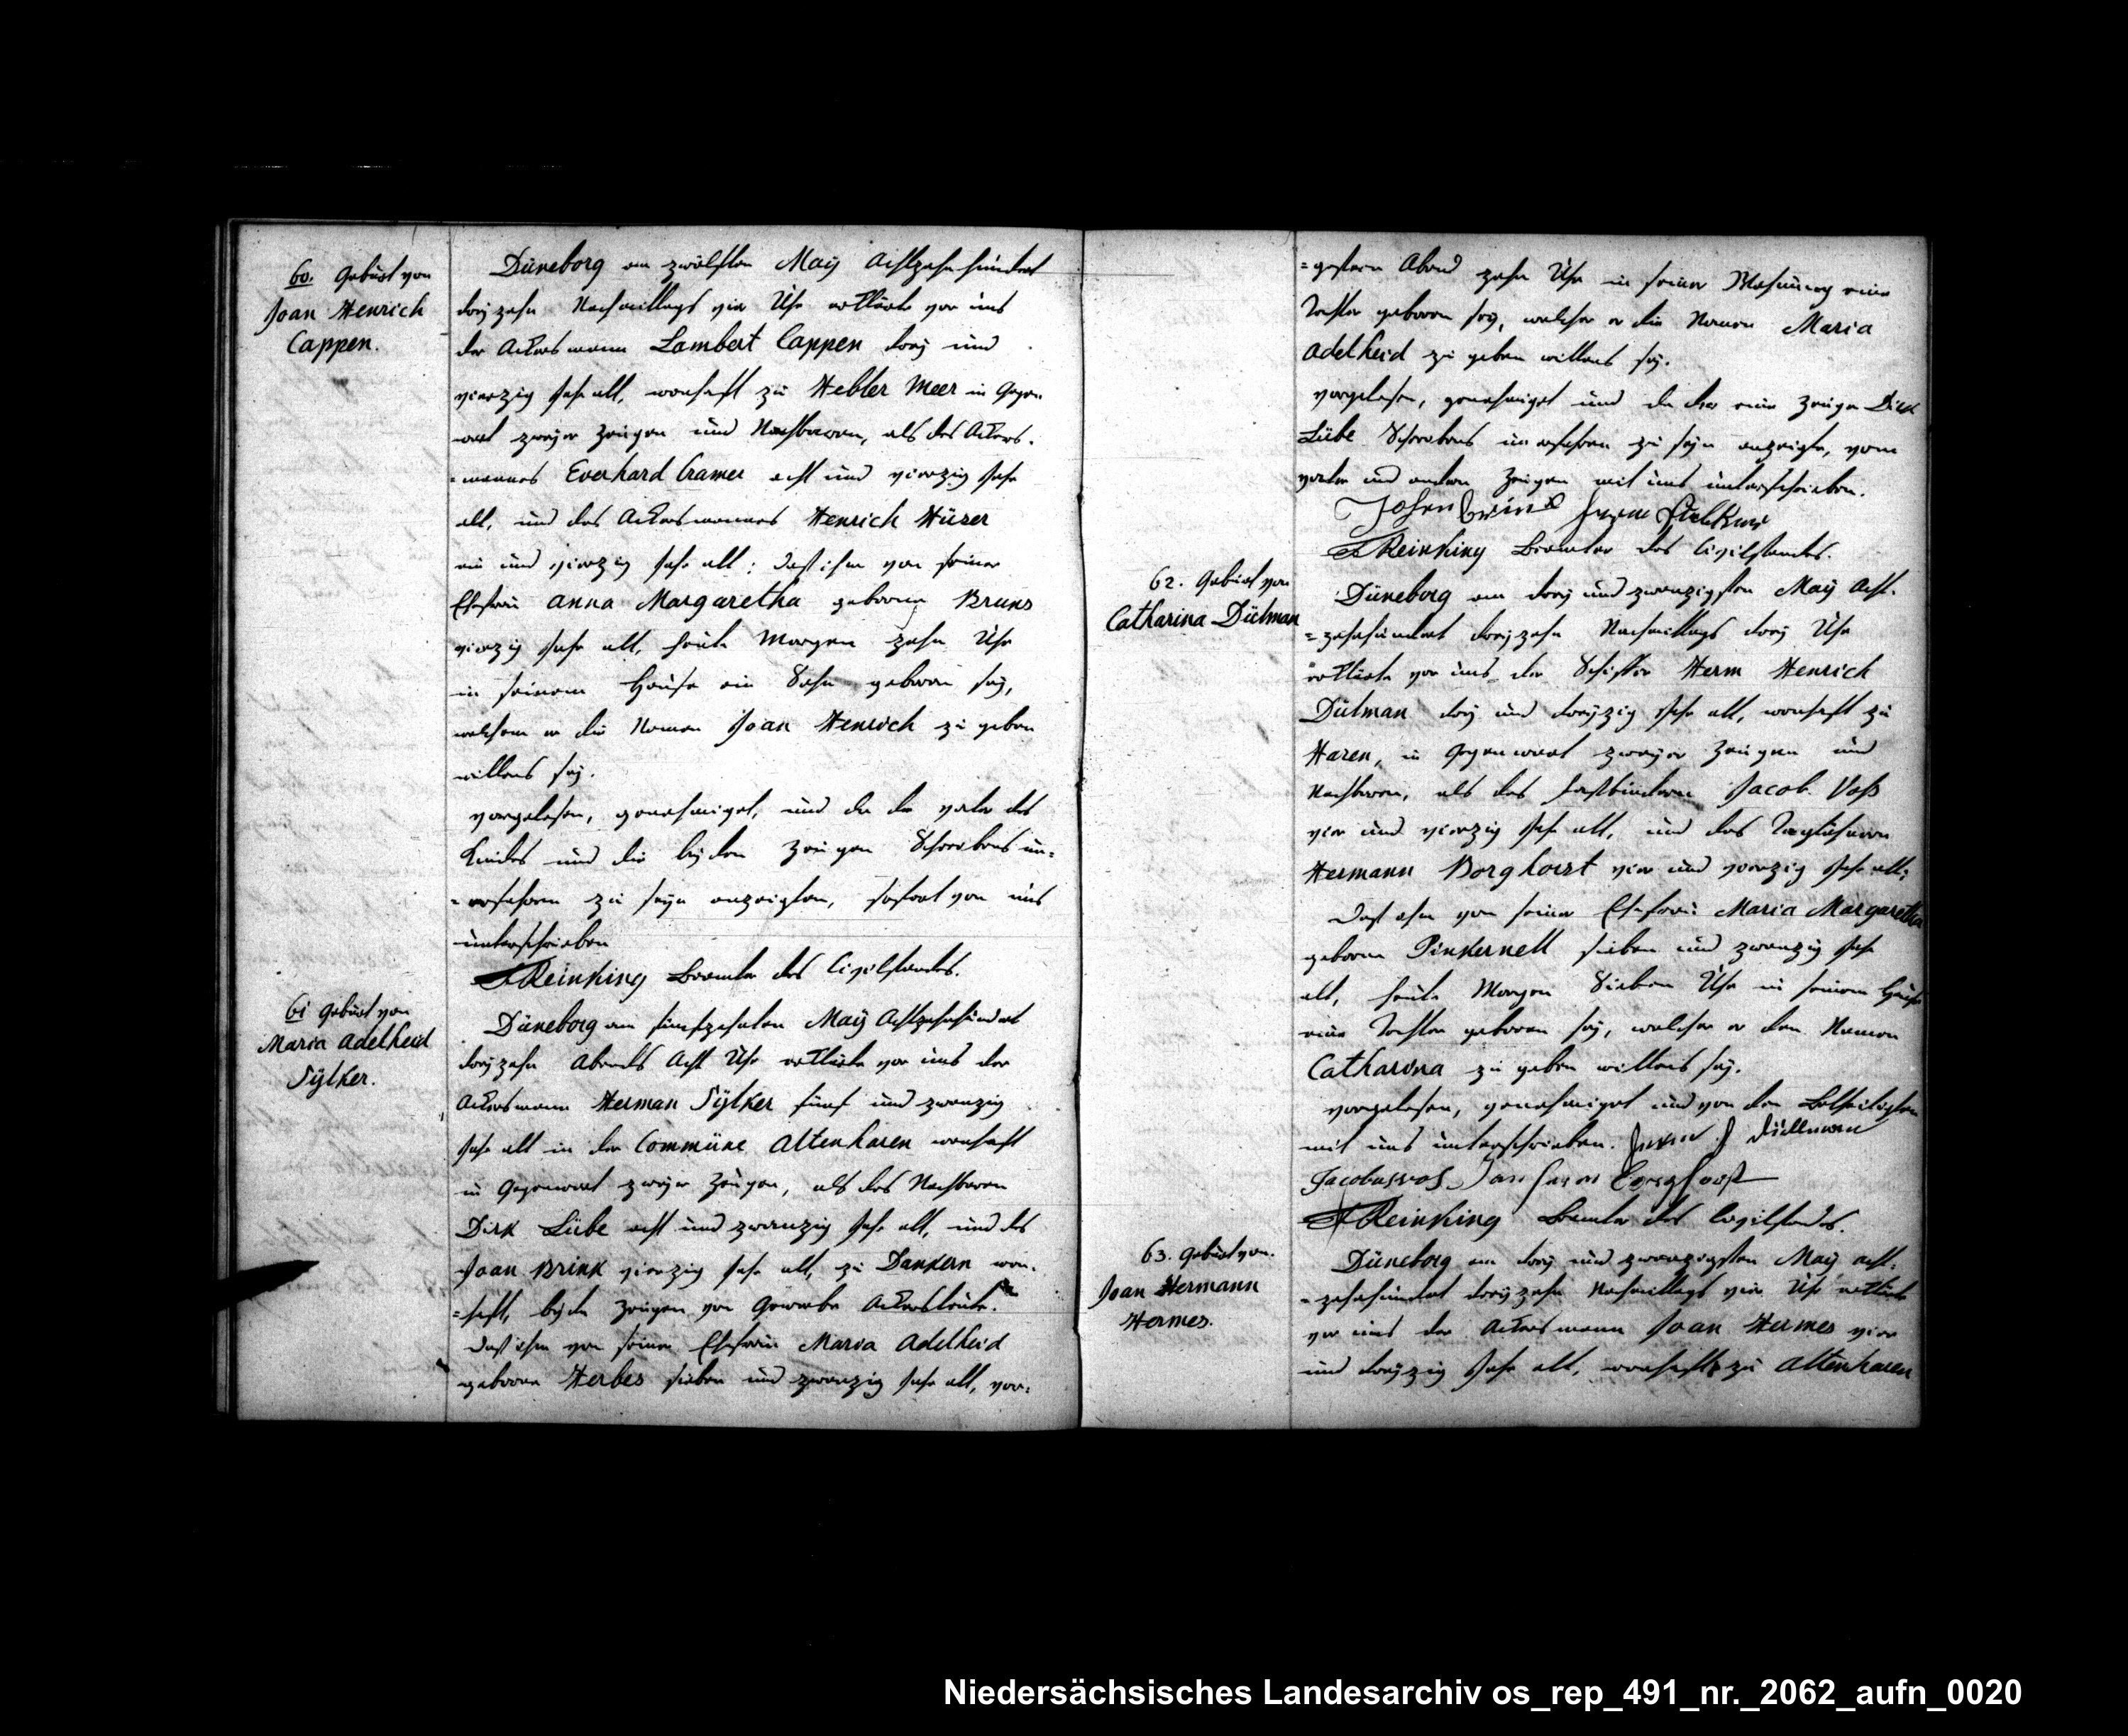 60. Geburt von
Joan Henrich
Cappen.
Düneborg am zwölften Maÿ Achtzehnhundert
dreÿzehn Nachmittags vier Uhr erklärte vor uns
der Ackersmann Lambert Cappen dreÿ und
vierzig Jahr alt, wonhaft zu Hebler Meer in Gegen-
wart zweÿer Zeugen und Nachbaren, als des Ackers-
=mannes Everhard Cramer acht und vierzig Jahr
alt, und des Ackersmannes Henrich Hüser
ein und vierzig Jahr alt: daß ihm von seiner
Ehefrau Anna Margaretha geborne Bruns
vierzig Jahr alt, heute Morgen zehn Uhr
in seinem Hause ein Sohn geboren seÿ,
welchem er die Namen Joan Henrich zu geben
willens seÿ.
vorgelesen, genehmiget, und da der vater des
Kindes und die beÿden Zeugen Schreibens un=
=erfahren zu seÿn anzeigten, sofort von uns
unterschrieben
Reinking Beamter des Civilstandes.
61 Geburt von
Maria Adelheid
Sÿlker.
Düneborg am funfzehnten Maÿ Achtzehnhundert
dreÿzehn Abends Acht Uhr erklärte vor uns der
Ackersmann Herman Sÿlker fünf und zwanzig
Jahr alt in der Commüne Altenharen wonhaft
in Gegenwart zweÿer Zeugen, als des Nachbaren
Dirk Lübe acht und zwanzig Jahr alt, und des
Joan Brink vierzig Jahr alt, zu Dankern won-
=haft, beÿde Zeugen von Gewerbe Ackersleute.
daß ihm von seiner Ehefrau Maria Adelheid
geborne Herbes sieben und zwanzig Jahr alt, vor-
=gestern Abend zehn Uhr in seiner Wohnung eine
Tochter geboren seÿ, welcher er die Namen Maria
Adelheid zu geben willens seÿ.
vorgelesen, genehmiget und da der eine Zeuge Dirk
Lübe Schreibens unerfahren zu seÿn anzeigte, vom
vater und andern Zeugen mit uns unterschrieben.
Reinking Beamter des Civilstandes.
62. Geburt von
Catharina Dülman
Düneborg am dreÿ und zwanzigsten Maÿ Acht-
=zehnhundert dreÿzehn Nachmittags dreÿ Uhr
erklärte vor uns der Schiffer Herm Henrich
Dülman dreÿ und dreÿzig Jahr alt, wonhaft zu
Haren, in Gegenwart zweÿer Zeugen und
Nachbaren, als des Fassbinderen Jacob Voß
vier und vierzig Jahr alt, und des Taglöhneren
Hermann Borghorst vier und vierzig Jahr alt;
daß ihm von seiner Ehefrau Maria Margaretha
geborne Pinkernell sieben und zwanzig Jahr
alt, heute Morgen Sieben Uhr in seinem Hause
eine Tochter geboren seÿ, welcher er den Namen
Catharina zu geben willens seÿ.
vorgelesen, genehmiget und von den Betheiligten
mit uns unterschrieben. Herm H Düllman
Jacobus vos Jan Herm Borghorst
Reinking Beamter des Civilstandes.
63. Geburt von
Joan Hermann
Hermes.
Düneborg am dreÿ und zwanzigsten Maÿ acht-
=zehnhundert dreÿzehn Nachmittags vier Uhr erklärte
vor uns der Ackersmann Joan Hermes vier
und dreÿzig Jahr alt, wonhaft zu Altenharen
Niedersächsisches Landesarchiv os_rep_491_nr._2062_aufn_0020